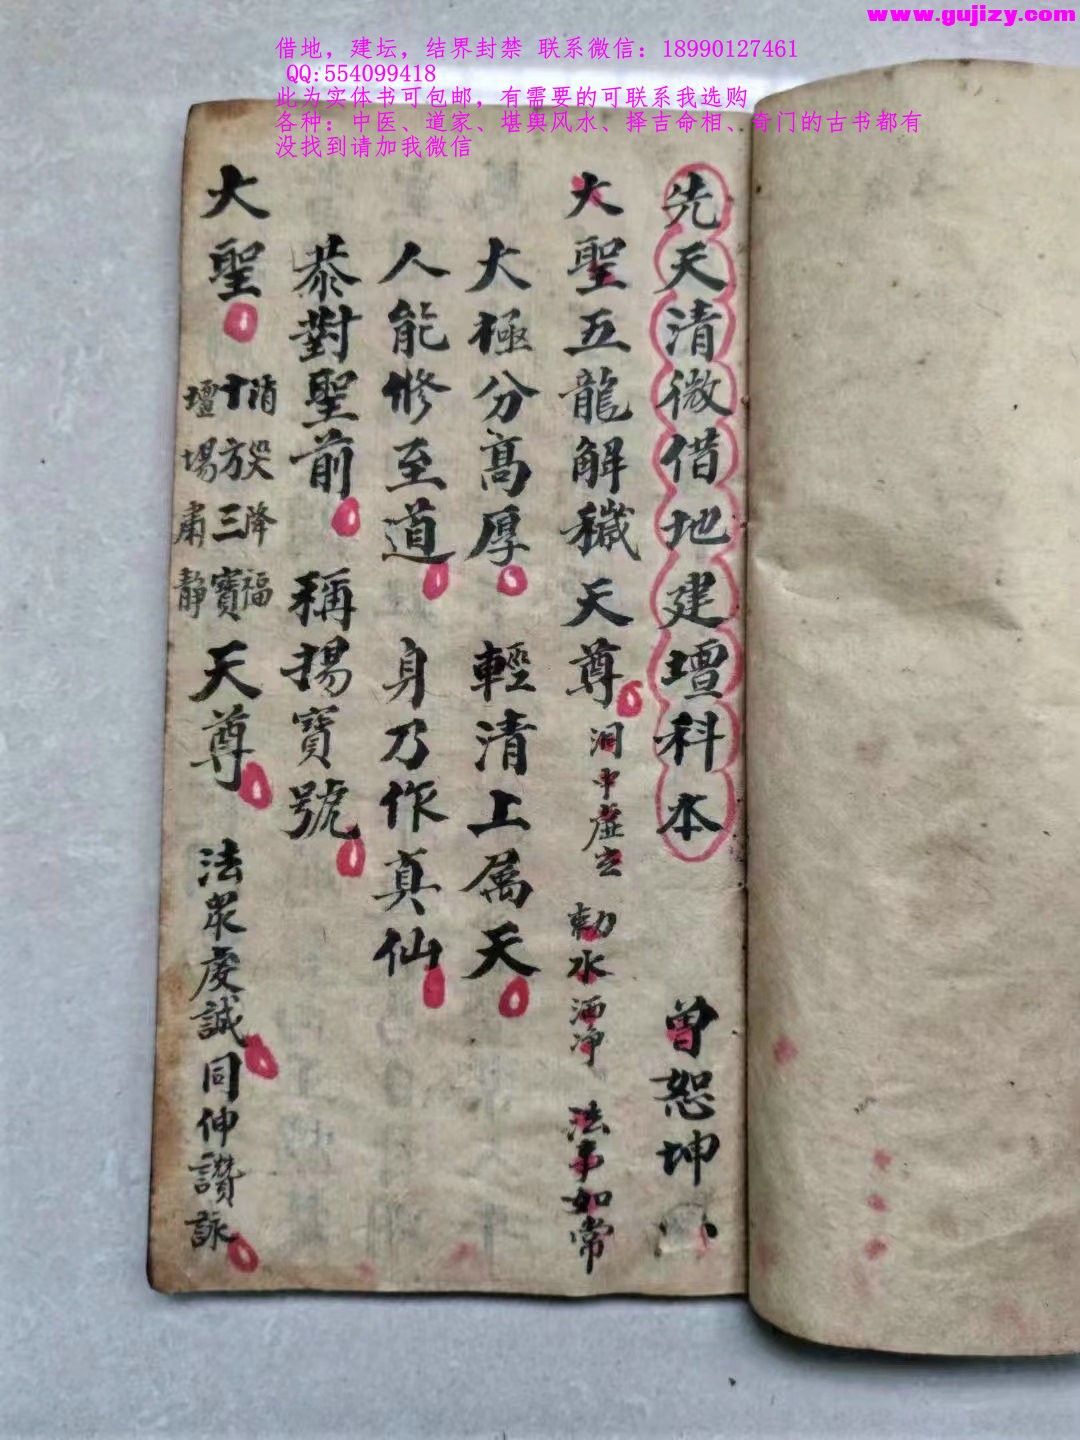 www.gujizy.com
借地，建坛，结界封禁 联系微信：18990127461
QQ:554099418
此为实体书可包邮，有需要的可联系我选购
各种：中医、道家、堪舆风水、择吉命相、奇门的古书都有
没找到请加我微信
先天清微借地建壇科本 曾恕坤
大聖五龍解穢天尊 洞中虛玄 勅水洒净 法事如常
大極分高厚 輕清上属天
人能修至道 身乃作真仙
恭對聖前 稱揚寶號
大聖 消災降福 十方三寶 壇場肅静 天尊 法眾虔誠同伸讚詠